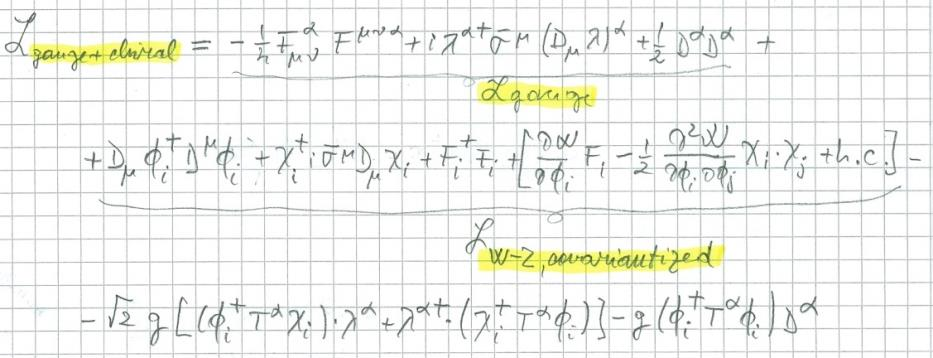 ℒ gauge+chiral = -1/4 F^α_μν F^μνα + i λ^α† σ̄^μ (D_μ λ)^α + 1/2 D^α D^α +
ℒ gauge
+ D_μ ϕ_i^† D^μ ϕ_i + χ_i^† i σ̄^μ D_μ χ_i + F_i^† F_i + [∂W/∂ϕ_i F_i - 1/2 ∂²W/∂ϕ_i∂ϕ_j χ_i·χ_j + h.c.] -
ℒ W-Z, covariantized
- √2 g [(ϕ_i^† T^α χ_i)·λ^α + λ^α†·(χ_i^† T^α ϕ_i)] - g (ϕ_i^† T^α ϕ_i) D^α